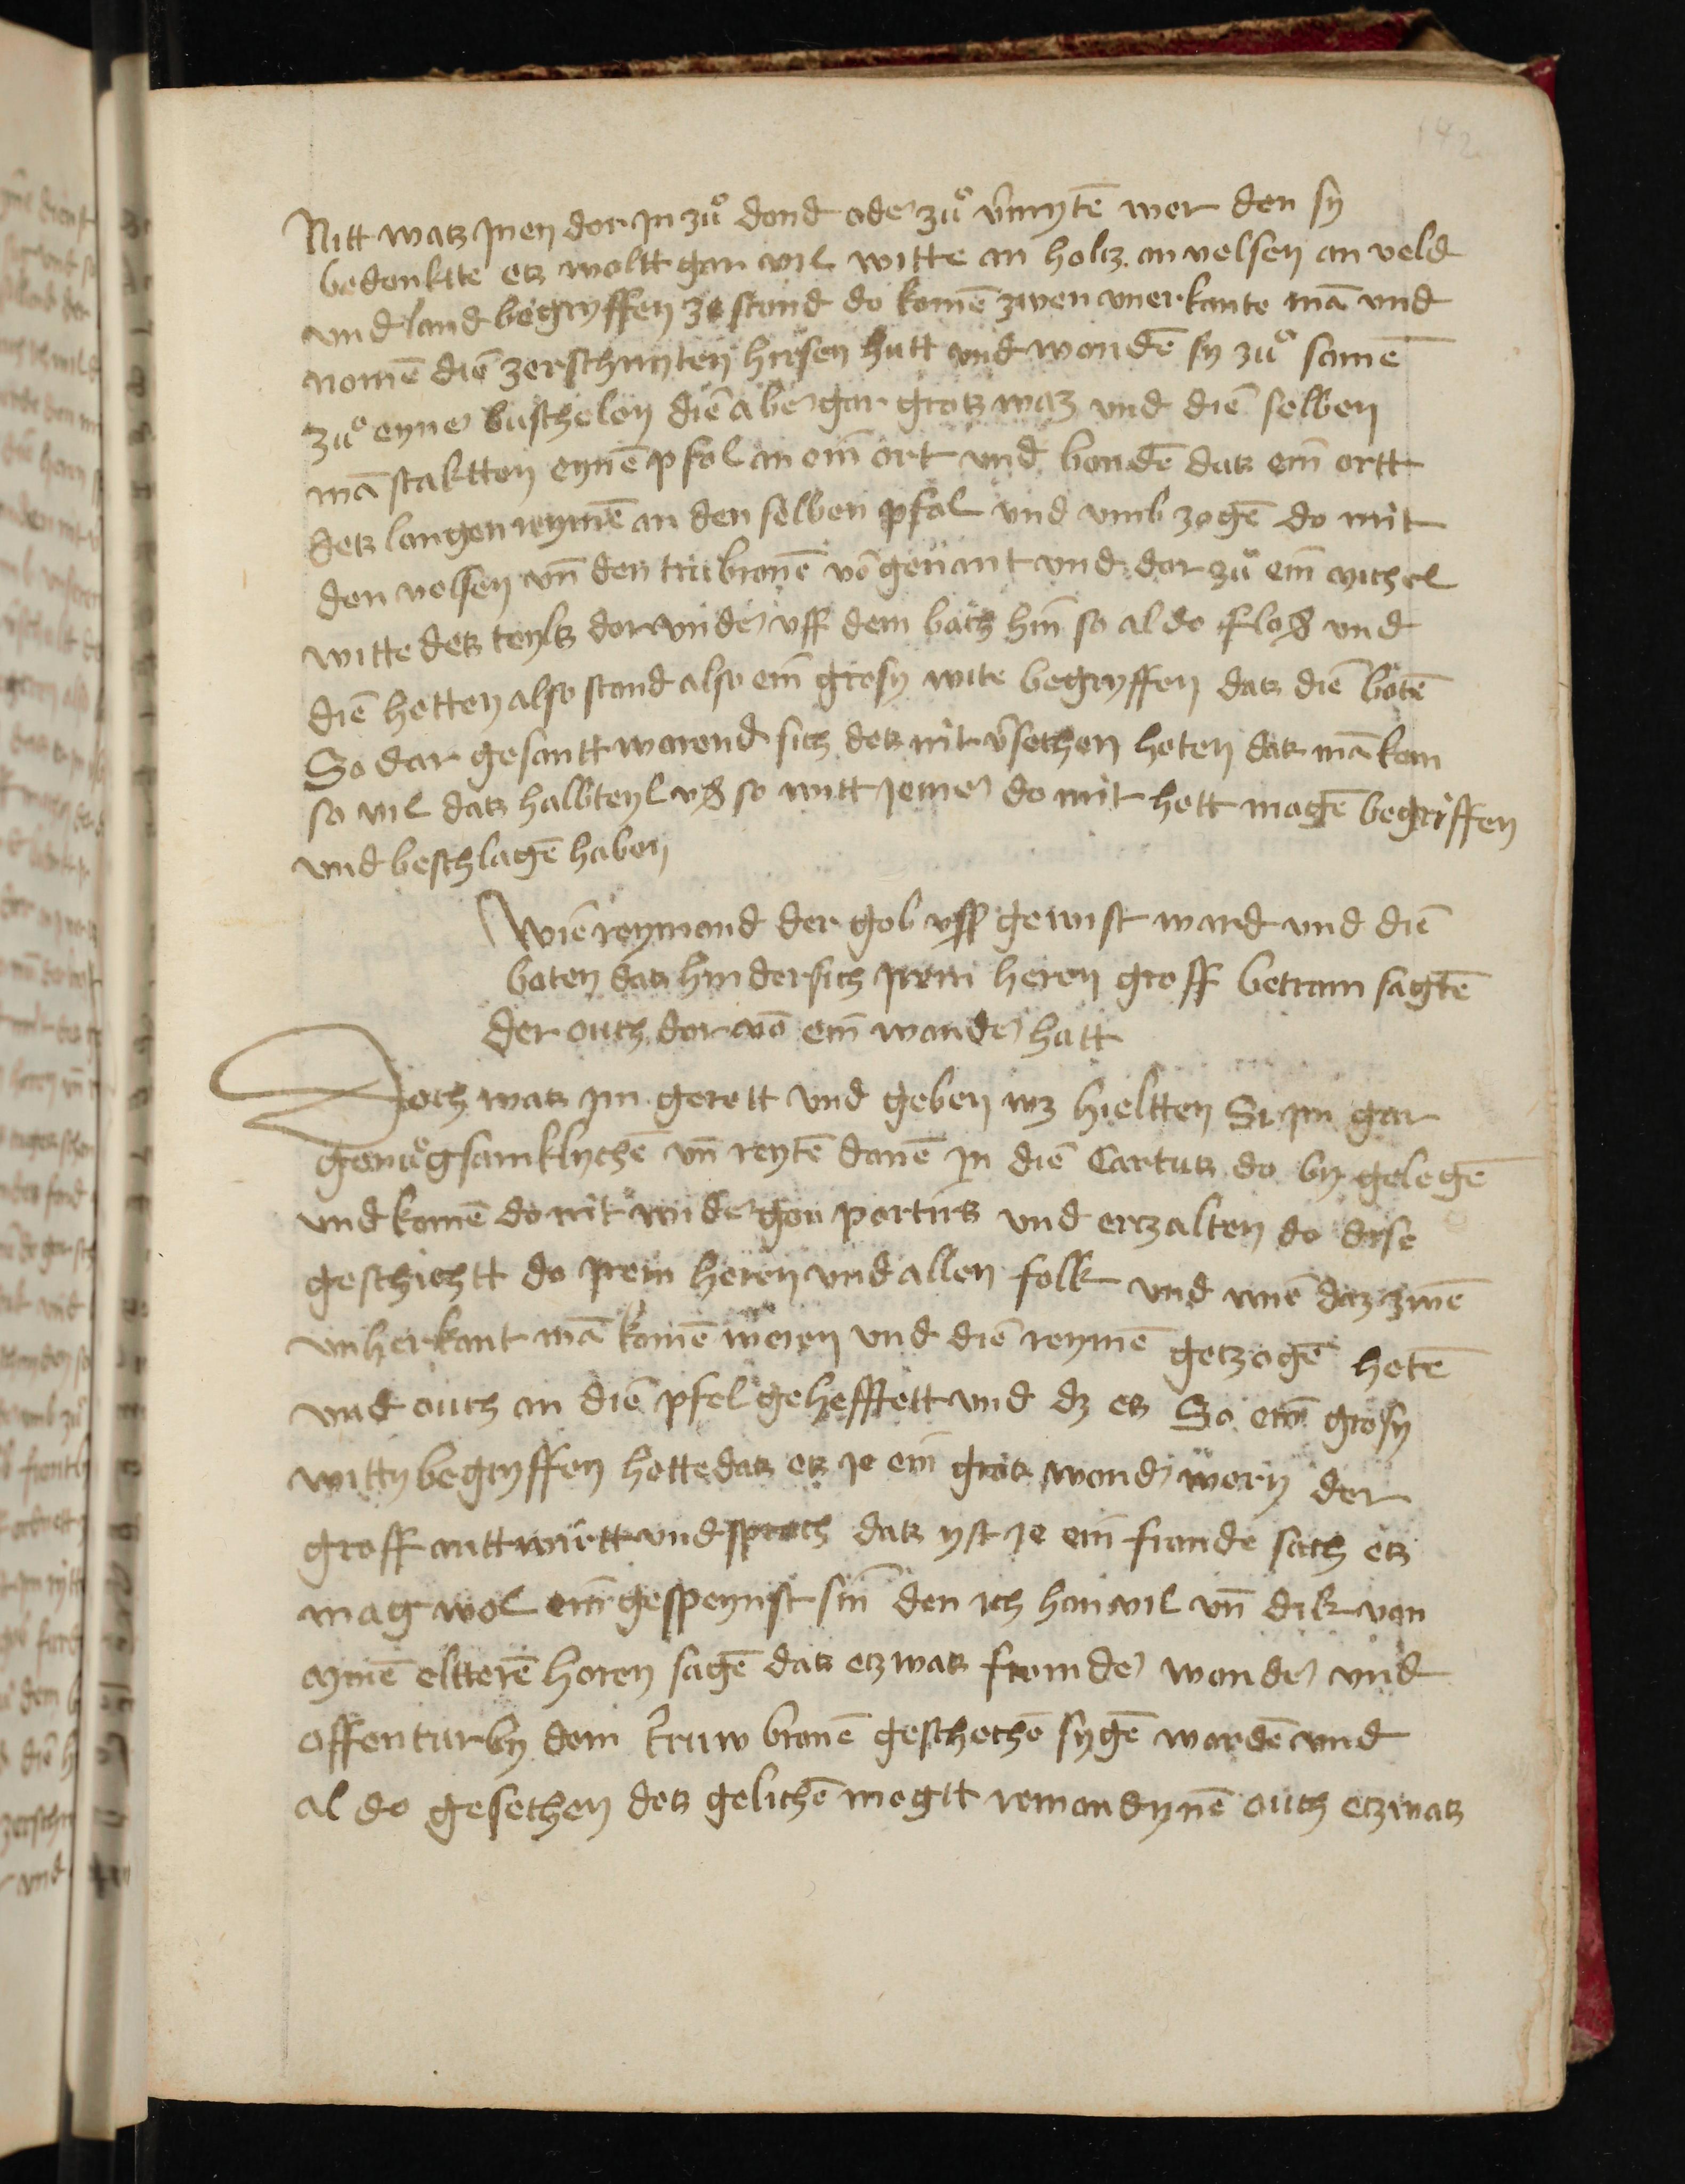 142
Nitt watz jnen dor jn zuͦ dond oder zuͦ v̄mytē wer den sy
bedonktte etz woltt gar vil witte an holtz an velsen an veld
vnd land begryffen ze stond do komē zwen vnerkante mā vnd
nomē diē zerschnyten hirsen hutt vnd wondē sy zuͦ somē
zuͦ eyner buschelen diē aber gar grotz waz vnd diē selben
mā staktten eynē pfol an ein̄ ort vnd bondē datz ein̄ ortt
detz langen reymē an den selben pfal vnd vmb zogē do mit
den velsen vn̄ den turbronē vō genant vnd dor zuͦ ein̄ michel
witte detz teyls dor vnder vff dem bach hin̄ so al do flosz vnd
diē hetten also stond also ein̄ grosy wite begryffen datz diē botē
So dar gesantt warend sich detz nit v̄sechen heten datz mā kom
so vil datz halbteyl vsz so witt jemer do mit hett mogē begriffen
vnd beschlagē haben
Wiē reymond der gob vff gewist ward vnd diē
boten datz hindersich jrem heren groff betram sagtē
der ouch dor vō ein̄ wonder hatt
Doch watz jm gerett vnd geben wz hieltten Si jm gar
genuͦgsamklychē vn̄ reytē donē jn diē Cartutz do by gelegē
vnd komē do mit wider gon portirs vnd erzalten do dise
geschichtt do jrem heren vnd allen folk vnd wiē daz zwē
vnherkant mā komē weren vnd diē reymē getzogē hetē
vnd ouch an diē pfel gehefftett vnd dz etz So ein̄ grosy
witty begryffen hette datz etz je ein̄ grotz wonder wery der
groff anttwurtt vnd sproch datz yst je ein̄ fromde sach etz
mag wol ein̄ gespeynst sin̄ den ich hon vil vn̄ dik von
mynē eltterē horen sagē datz etzwatz fromder wonder vnd
offentur by dem turw bronē geschechē sygē wordē vnd
al do gesechen detz gelichē mogtt remondynē ouch etzwatz